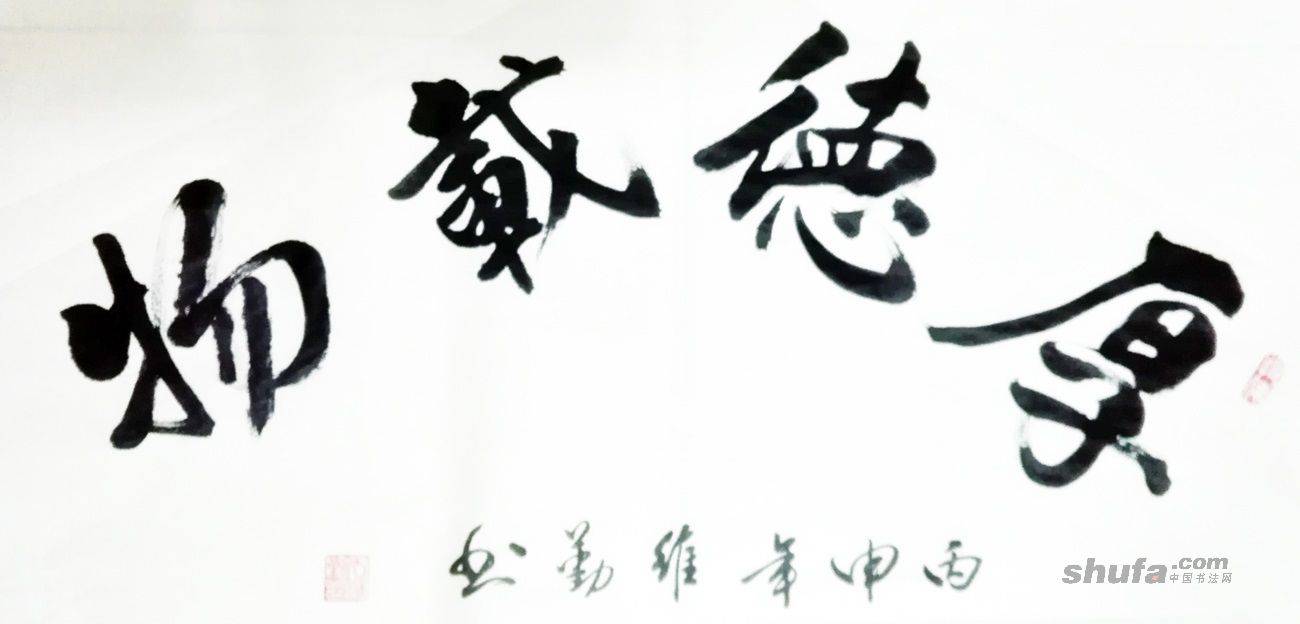 厚德載物
丙申年維勤书
shufa.com
中国书法网